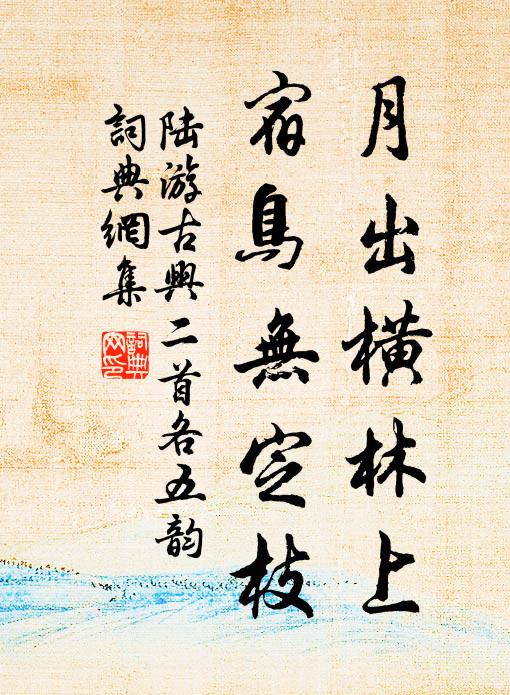 月出橫林上
宿鳥無定枝
陸游古興二首各五韵
詞典網集
詞典网印